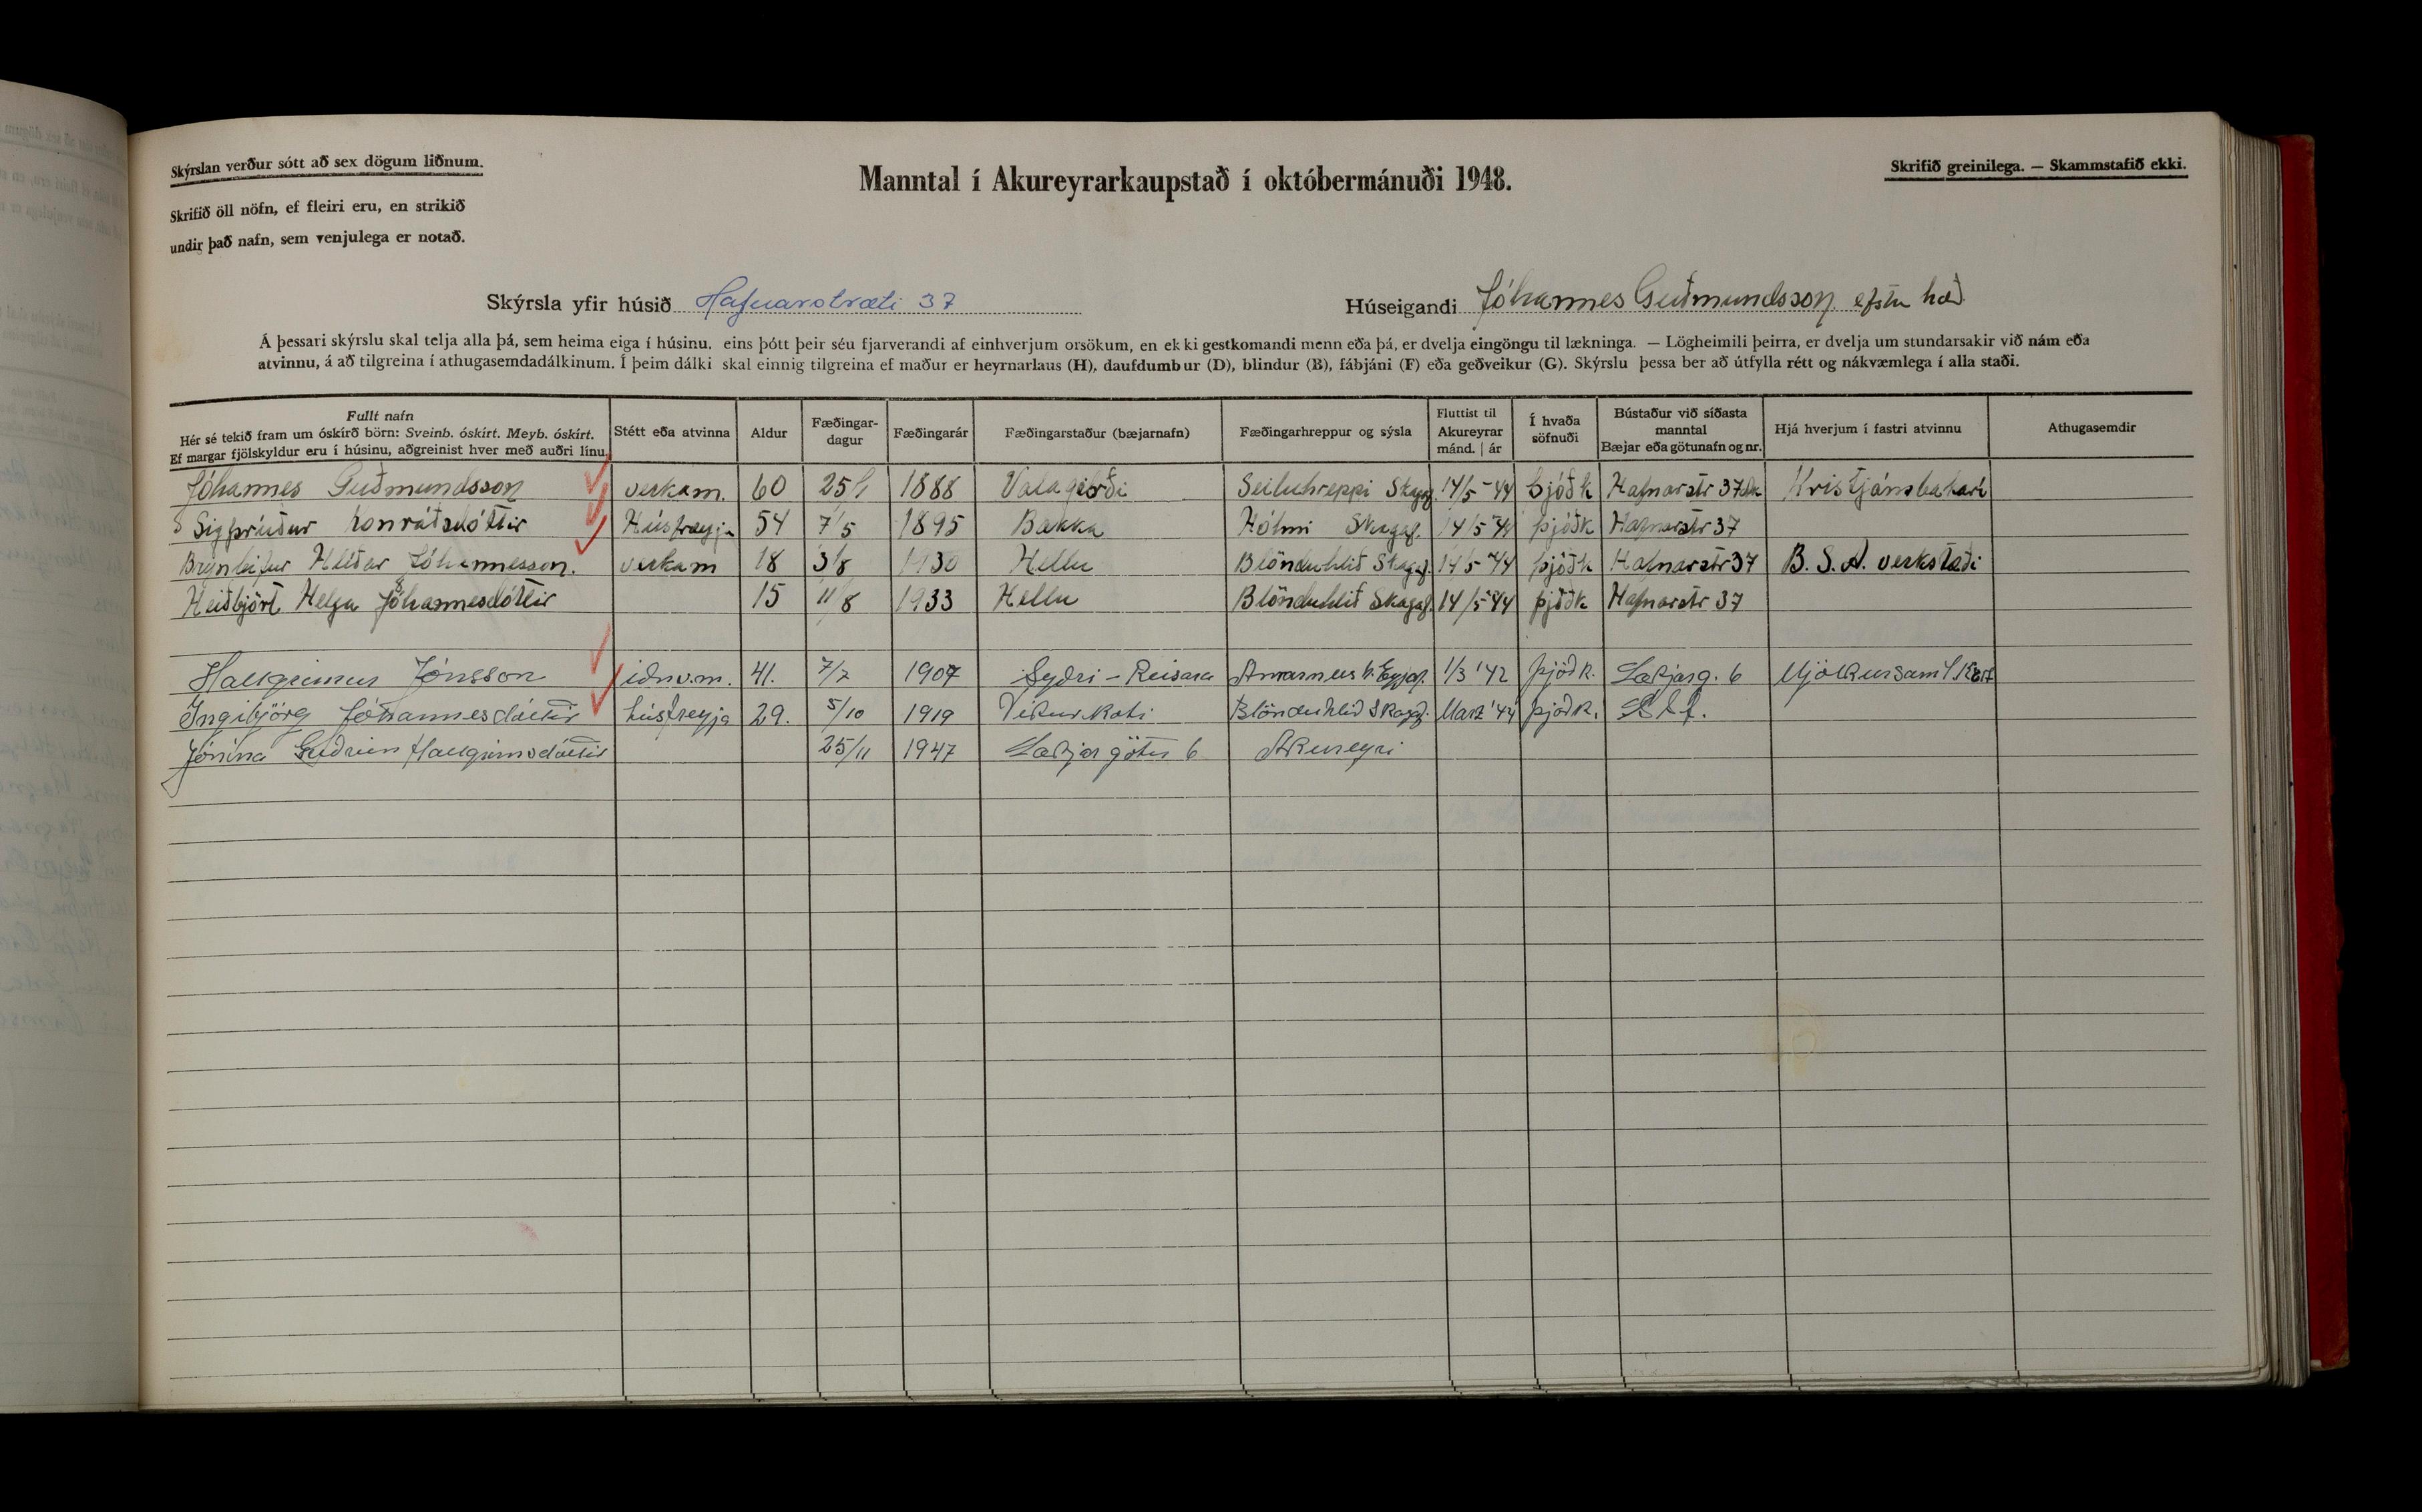 Skýrslan verður sótt að sex dögum liðnum.
Skrifið öll nöfn, ef fleiri eru, en strikið
undir það nafn, sem venjulega er notað.
Manntal í Akureyrarkaupstað í októbermánuði 1948.
Skrifið greinilega. — Skammstafið ekki.
Skýrsla yfir húsið Hafnarstræti 37
Húseigandi Jóhannes Guðmundsson efstu hæð
Á þessari skýrslu skal telja alla þá, sem heima eiga í húsinu, eins þótt þeir séu fjarverandi af einhverjum orsökum, en ekki gestkomandi menn eða þá, er dvelja eingöngu til lækninga. — Lögheimili þeirra, er dvelja um stundarsakir við nám eða
atvinnu, á að tilgreina í athugasemdadálkinum. Í þeim dálki skal einnig tilgreina ef maður er heyrnarlaus (H), daufdumbur (D), blindur (B), fábjáni (F) eða geðveikur (G). Skýrslu þessa ber að útfylla rétt og nákvæmlega í alla staði.
Fullt nafn
Hér sé tekið fram um óskírð börn: Sveinb. óskírt. Meyb. óskírt.
Ef margar fjölskyldur eru í húsinu, aðgreinist hver með auðri línu.
Stétt eða atvinna
Aldur
Fæðingar-
dagur
Fæðingarár
Fæðingarstaður (bæjarnafn)
Fæðingarhreppur og sýsla
Fluttist til
Akureyrar
mánd. | ár
Í hvaða
söfnuði
Bústaður við síðasta
manntal
Bæjar eða götunafn og nr.
Hjá hverjum í fastri atvinnu
Athugasemdir
Jóhannes Guðmundsson verkam. 60 1888 Valagerði Seiluhreppi Skagf. 14/5-44 þjóðk Hafnarstr 37 Kristjánsbakarí
Sigþrúður Konráðsdóttir Húsfreyja 54 7/5 1895 Bakka Hólmi Skagaf. 14/5-44 þjóðk Hafnarstr 37
Brynleifur Hlíðar Jóhannesson. verkam 18 3/8 1930 Hellu Blönduhlíð Skagaf. 14/5-44 þjóðk Hafnarstr 37 B.S.A. verkstæði
Heiðbjört Helga Jóhannesdóttir 15 11/8 1933 Hellu Blönduhlíð Skagaf. 14/5-44 þjóðk Hafnarstr 37
Hallgrímur Jónsson iðnv.m. 41. 7/7 1907 Syðri-Reistará Arnarnesh. Eyjaf. 1/3 '42 þjóðk. Lækjarg. 6 Mjólkursaml.
Ingibjörg Jóhannesdóttir húsfreyja 29. 5/10 1919 Víkurkoti Blönduhlíð Skagf. Marz '44 þjóðk.
Jónína Guðrún Hallgrímsdóttir 25/11 1947 Lækjargötu 6 Akureyri